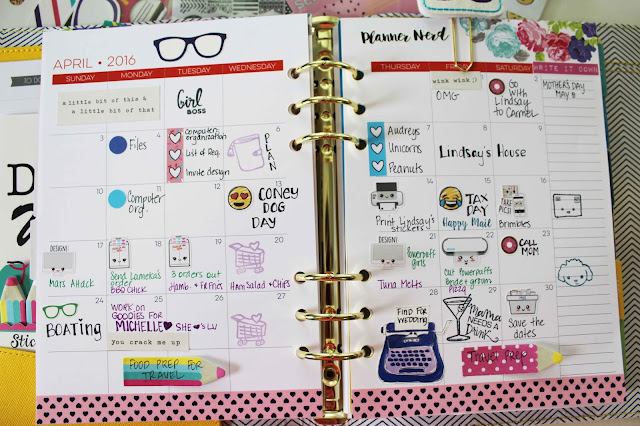 TO DO
APRIL • 2016
SUNDAY MONDAY TUESDAY WEDNESDAY
a little bit of this &
a little bit of that
Girl
BOSS
3 4 5 6
Files
Computer
organization
List of Req.
Invite design
PLAN
10 11 12 13
Computer
org.
CONEY
DOG
DAY
17 18 19 20
DESIGN!
Mars Attack
Send Lameka's
order out
BBQ Chick
3 orders out
Hamb. + Fr Fries
Ham Salad + Chips
24 25 26 27
BOATING
WORK ON
GOODIES FOR
MICHELLE
SHE ♥'s LV
you crack me up
FOOD PREP FOR
TRAVEL
Planner Nerd
THURSDAY FRIDAY SATURDAY WRITE IT DOWN
wink wink ;)
OMG
2
Go
with
Lindsay
to Carmel
MOTHERS DAY
MAY 8
7 8 9
Audreys
Unicorns
Peanuts
Lindsay's House
14 15 16
Print Lindsay's
stickers
TAX
DAY
Happy Mail
TAKE
PICS!
Brimbles
21 22 23
DESIGN!
Powerpuff
girls
Tuna Melts
Cut powerpuffs
Pizza
CALL
MOM
28 29 30
FIND FOR
WEDDING
MAMA
NEEDS A
DRINK
Save the
dates
Travel Prep
Stic